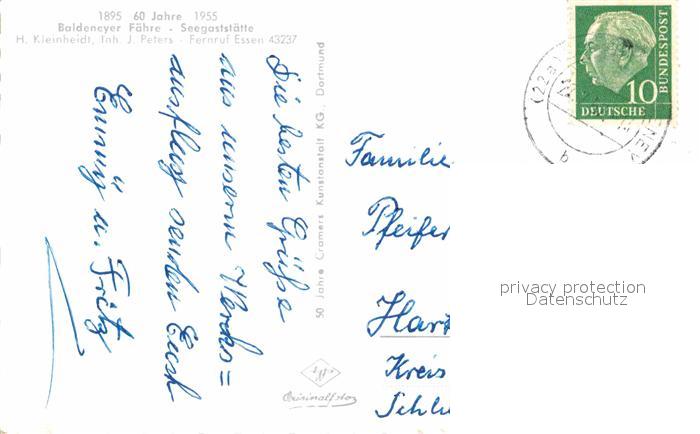 1895 60 Jahre 1955
Baldeneyer Fähre - Seegaststätte
H. Kleinheidt, Inh. J. Peters - Fernruf Essen 43237
Die besten Grüße
aus unserm Werks=
ausflug senden Euch
Emmy u. Fritz
50 Jahre Cramers Kunstanstalt KG., Dortmund
Originalfoto
Familie
Pfeifer
Har
Kreis
Schl
DEUTSCHE
BUNDESPOST
10
(22a)
b
privacy protection
Datenschutz